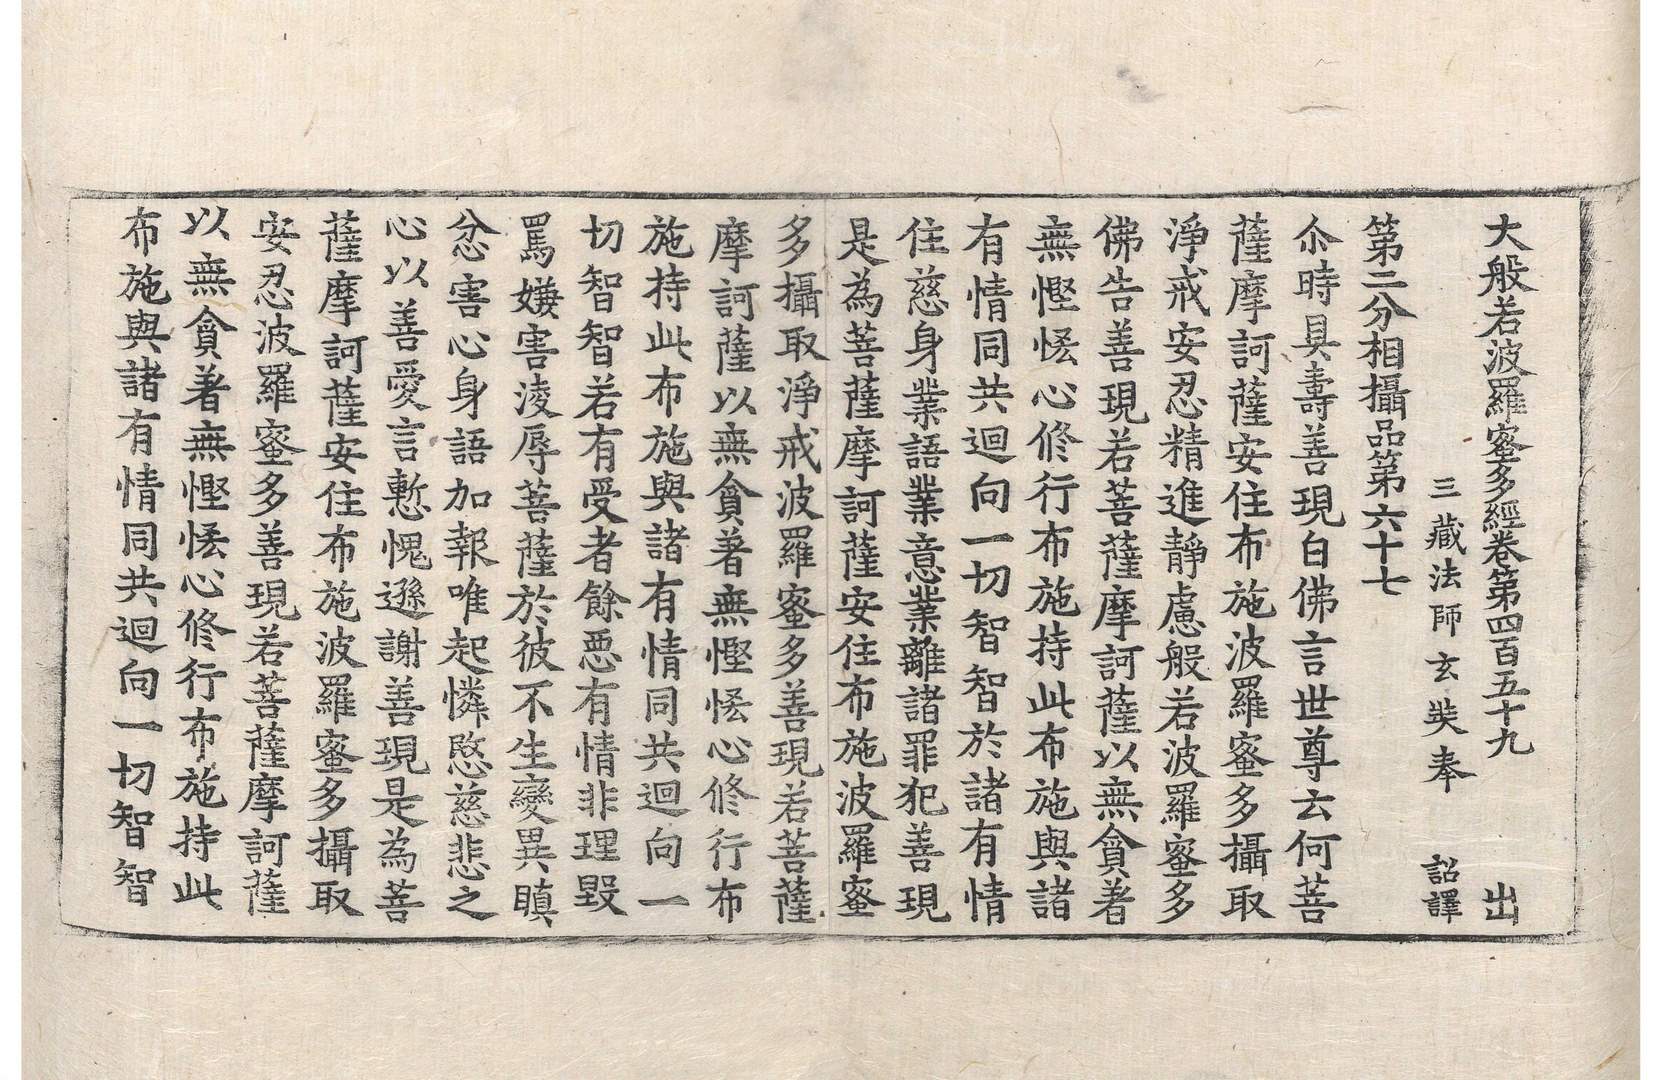 大般若波羅蜜多經卷第四百五十九 出
三藏法師玄奘奉 詔譯
第二分相攝品第六十七
尒時具壽善現白佛言世尊云何菩
薩摩訶薩安住布施波羅蜜多攝取
淨戒安忍精進靜慮般若波羅蜜多
佛告善現若菩薩摩訶薩以無貪著
無慳悋心修行布施持此布施與諸
有情同共迴向一切智智於諸有情
住慈身業語業意業離諸罪犯善現
是為菩薩摩訶薩安住布施波羅蜜
多攝取淨戒波羅蜜多善現若菩薩
摩訶薩以無貪著無慳悋心修行布
施持此布施與諸有情同共迴向一
切智智若有受者餘惡有情非理毀
罵嫌害淩辱菩薩於彼不生變異瞋
忿害心身語加報唯起憐愍慈悲之
心以善愛言慙愧遜謝善現是為菩
薩摩訶薩安住布施波羅蜜多攝取
安忍波羅蜜多善現若菩薩摩訶薩
以無貪著無慳悋心修行布施持此
布施與諸有情同共迴向一切智智